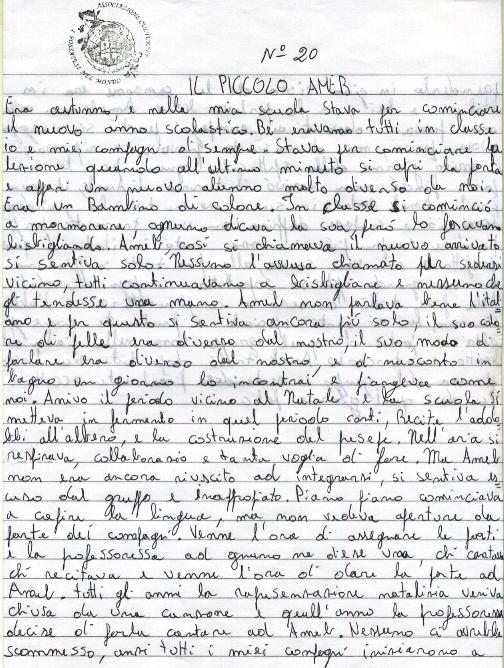 ASSOCIAZIONE CULTURALE
NEL MONDO
N° 20
IL PICCOLO AMEB
Era autunno, e nella mia scuola stava per cominciare
il nuovo anno scolastico. Bi eravamo tutti in classe
io e miei compagni di sempre. Stava per cominciare la
lezione quando all'ultimo minuto si aprì la porta
e appari un nuovo alunno molto diverso da noi.
Era un Bambino di colore. In classe si cominciò
a mormorare, ognuno diceva la sua, però lo facevano
bisbigliando. Ameb, così si chiamava il nuovo arrivato
si sentiva solo. Nessuno l'aveva chiamato per sedersi
vicino, tutti continuavano a bisbigliare e nessuno che
gl tendesse una mano. Ameb non parlava bene l'ital
iano e per questo si sentiva ancora più solo, il suo colo
re di pelle era diverso dal nostro, il suo modo di
parlare era diverso dal nostro, e di nascosto in
bagno un giorno lo incontrai e piangeva come
noi. Arrivo il periodo vicino al Natale e la scuola si
metteva in fermento in quel periodo canti, Recite l'addo
bbi all'albero, e la costruzione del presepe. Nell'aria si
respirava, collaborazio e tanta voglia di fare. Ma Ameb
non era ancora riuscito ad integrarsi, si sentiva es
cuso dal gruppo e Inappropiato. Piano piano cominciava
a capire la lingua, ma non vedeva apertura da
parte dei compagni. Venne l'ora di assegnare le parti
e la professoressa ad ognuno ne diese una, chi cantava
chi recitava e venne l'ora di dare la parte ad
Ameb. Tutti gl anni la rapresentazione natalizia veniva
chiusa da una canzone e quell'anno la professoressa
decise di farla cantare ad Ameb. Nessuno ci avrebbe
scommesso, anzi tutti i miei compagni iniziarono a